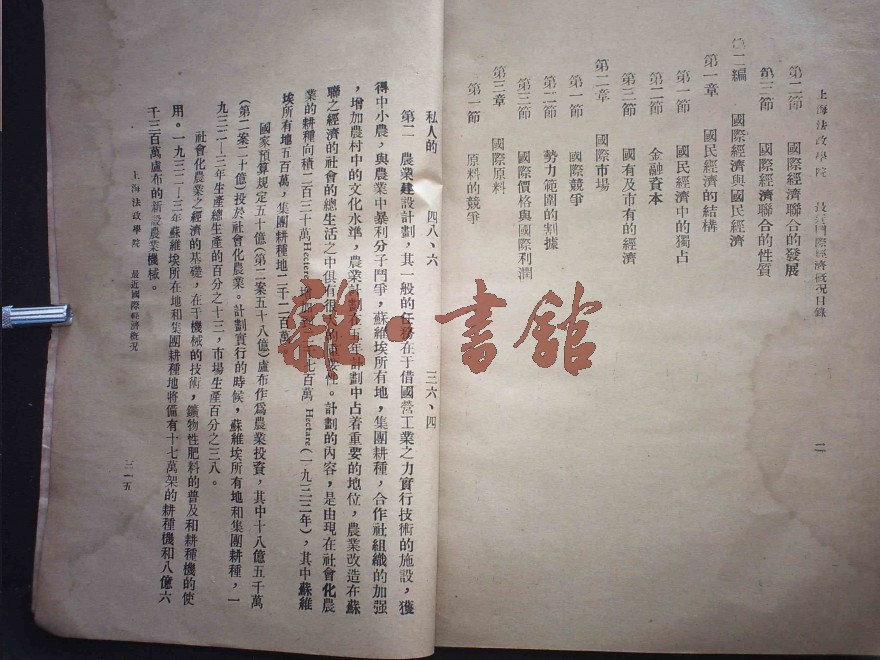 上海法政學院 最近國際經濟概况目錄
第二節 國際經濟聯合的發展
第三節 國際經濟聯合的性質
第二編 國際經濟與國民經濟
第一章 國民經濟的結構
第一節 國民經濟中的獨占
第二節 金融資本
第三節 國有及市有的經濟
第二章 國際市場
第一節 國際競爭
第二節 勢力範圍的割據
第三節 國際價格與國際利潤
第三章 國際原料
第一節 原料的競爭
二
私人的 四八、六 三六、四
第二 農業建設計劃,其一般的任務在于借國營工業之力實行技術的施設,獲
得中小農,與農業中暴利分子鬥爭,蘇維埃所有地,集團耕種,合作社組織的加强
,增加農村中的文化水準,農業計劃在五年計劃中占着重要的地位,農業改造在蘇
聯之經濟的社會的總生活之中俱有很 的 性。計劃的內容,是由現在社會化農
業的耕種向積二百三十萬Hectere 七百萬 Hectare(一九三三年),其中蘇維
埃所有地五百萬,集團耕種地二千二百萬
國家預算規定五十億(第二案五十八億)盧布作爲農業投資,其中十八億五千萬
(第二案二十億)投於社會化農業。計劃實行的時候,蘇維埃所有地和集團耕種,一
九三二—三年生產總生產的百分之十三,市場生產百分之三八。
社會化農業之經濟的基礎,在于機械的技術,鑛物性肥料的普及和耕種機的使
用。一九三二—三年蘇維埃所在地和集團耕種地將備有十七萬架的耕種機和八億六
千三百萬盧布的新設農業機械。
上海法政學院 最近國際經濟概况
三一五
雜·書館